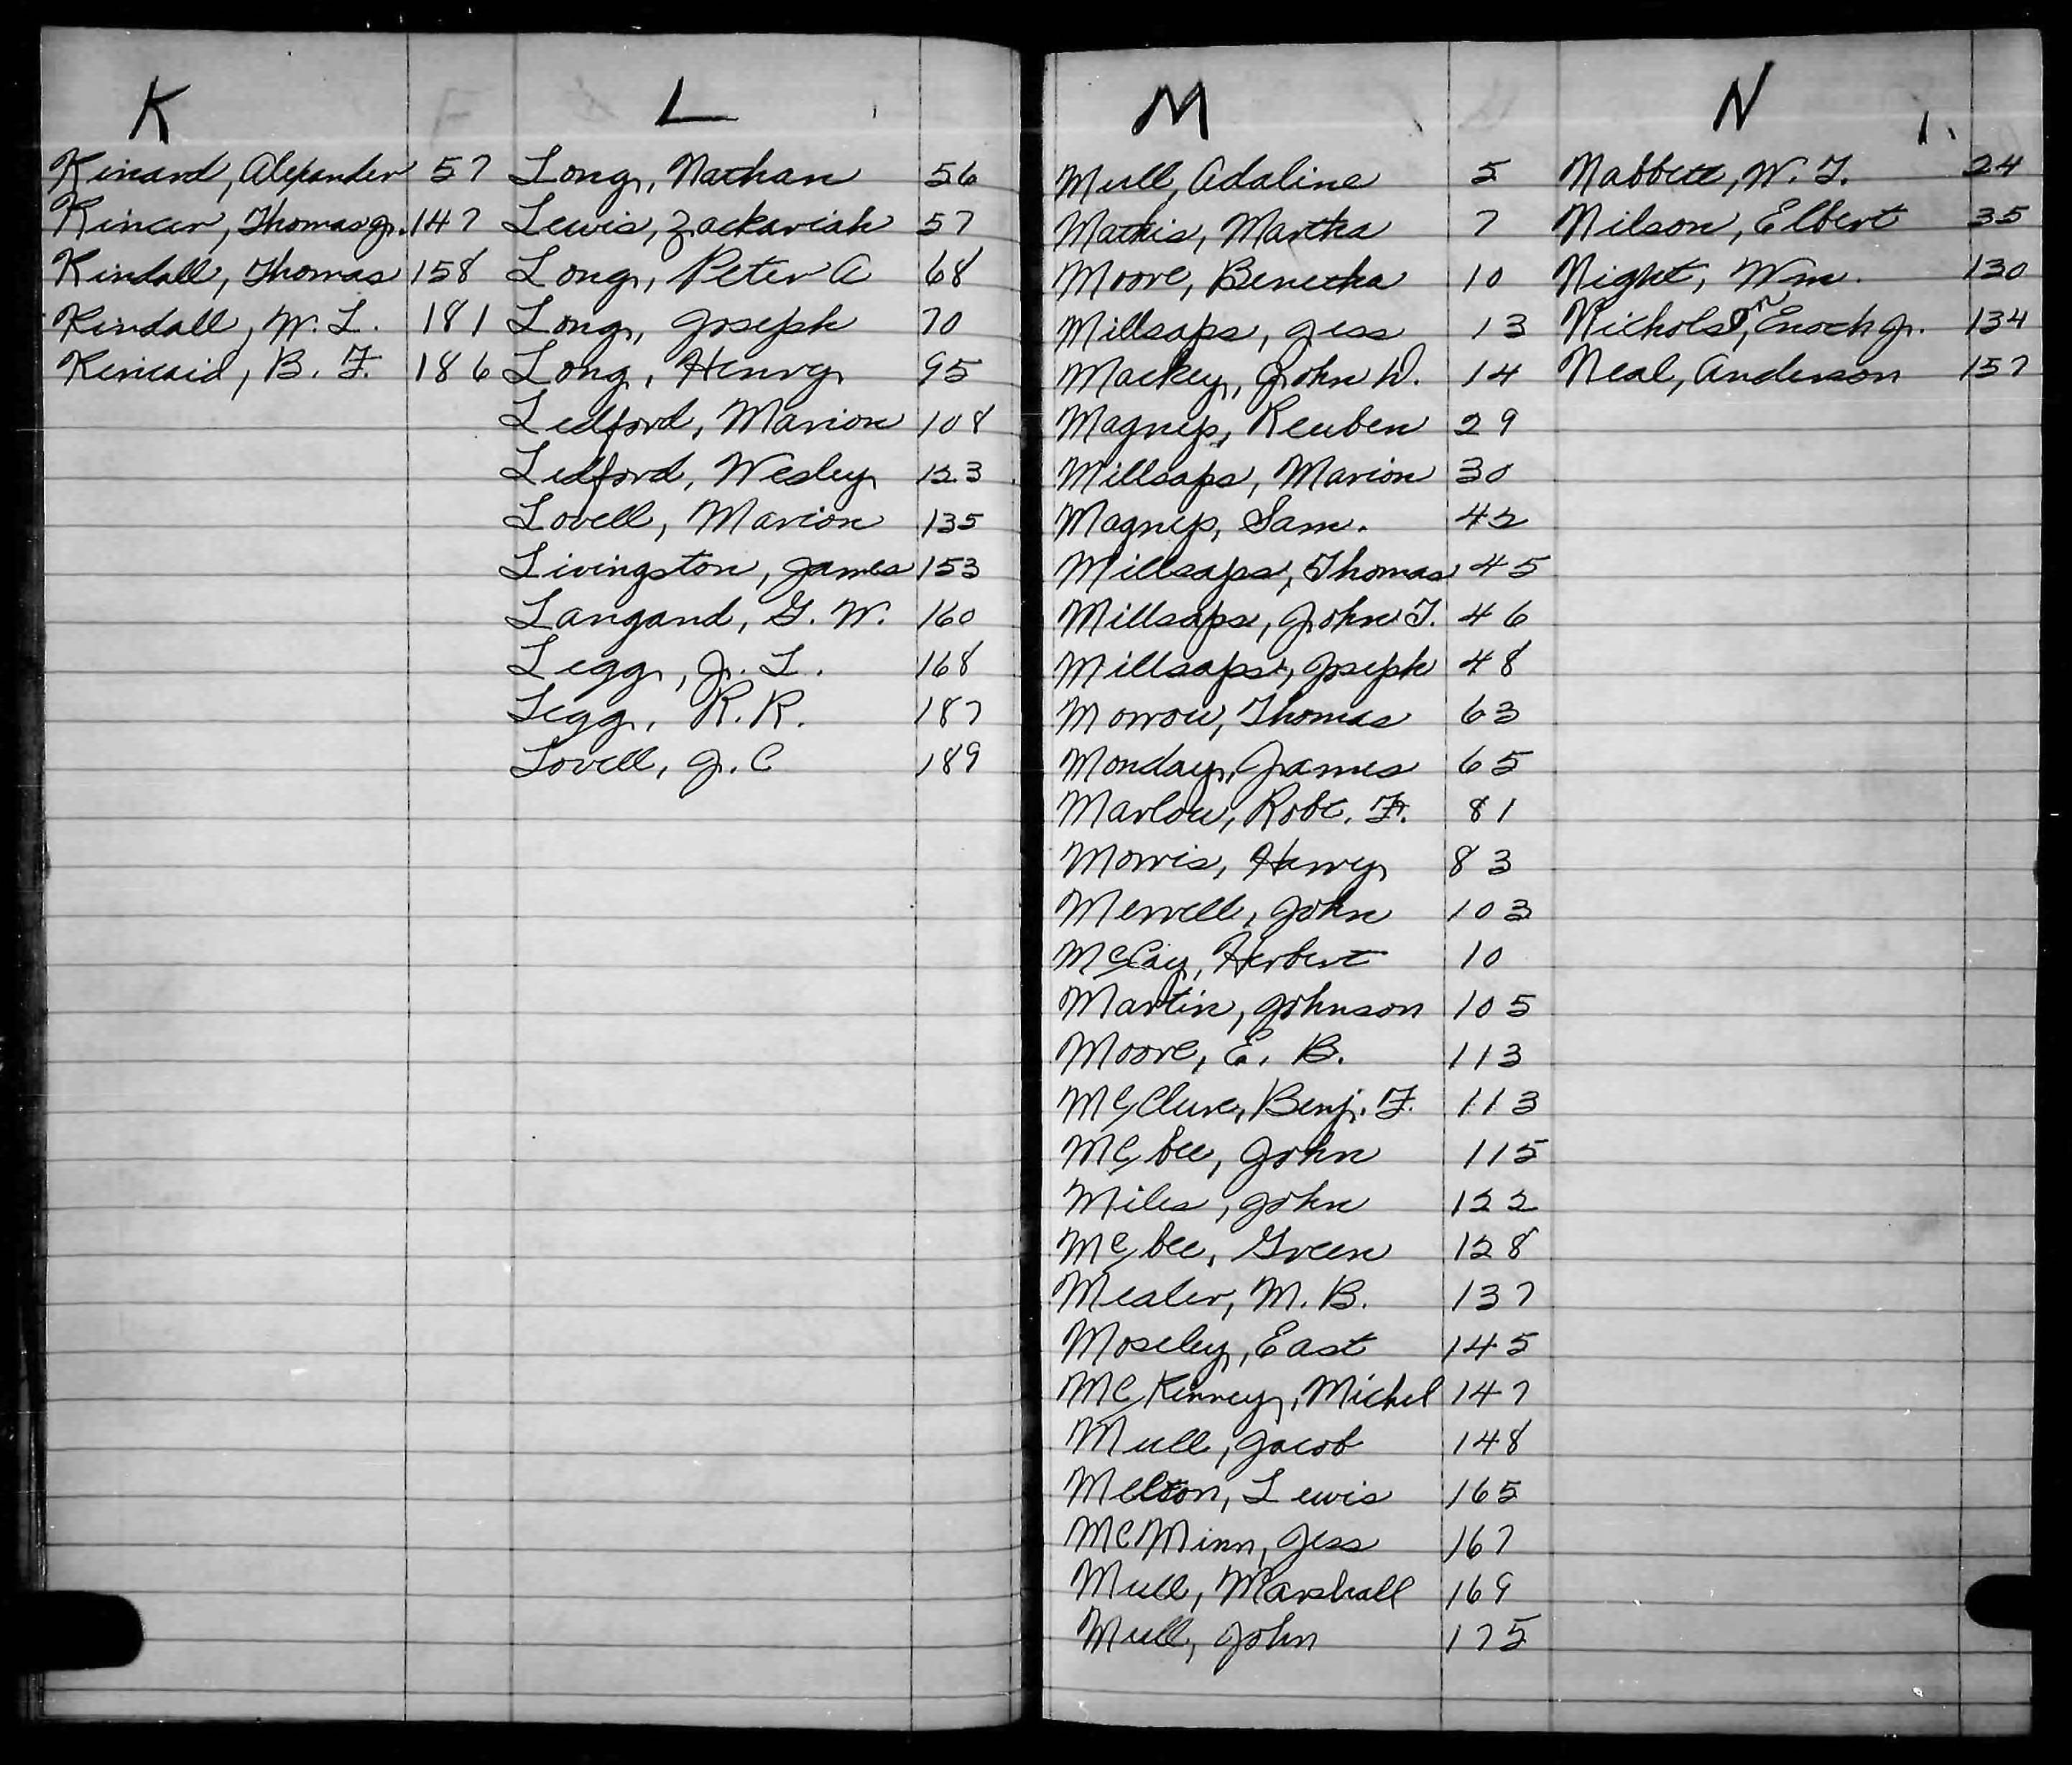 K
Kinard, Alexander 57
Kincer, Thomas Jr. 147
Kindall, Thomas 158
Kindall, W. L. 181
Kincaid, B. F. 186
L
Long, Nathan 56
Lewis, Zackariah 57
Long, Peter A 68
Long, Joseph 70
Long, Henry 95
Ledford, Marion 108
Ledford, Wesley 123
Lovell, Marion 135
Livingston, James 153
Langand, G. W. 160
Legg, J. L. 168
Legg, R. R. 187
Lovell, J. C 189
M
Mull, Adaline 5
Mathis, Martha 7
Moore, Benetha 10
Millsaps, Jess 13
Mackey, John W. 14
Magnes, Reuben 29
Millsaps, Marion 30
Magnes, Sam. 42
Millsaps, Thomas 45
Millsaps, John T. 46
Millsaps, Joseph 48
Morrow, Thomas 63
Monday, James 65
Marlow, Robt. F. 81
Morris, Henry 83
Merrell, John 103
McCay, Herbert 10
Martin, Johnson 105
Moore, E. B. 113
McClure, Benj. F. 113
McBee, John 115
Miles, John 122
McBee, Green 128
Mealer, M. B. 137
Moseley, East 145
McKinney, Michel 147
Mull, Jacob 148
Melton, Lewis 165
McMinn, Jess 167
Mull, Marshall 169
Mull, John 175
N
Nabbett, W. T. 24
Nilson, Elbert 35
Night, Wm. 130
Nicholson, Enoch Jr. 134
Neal, Anderson 157